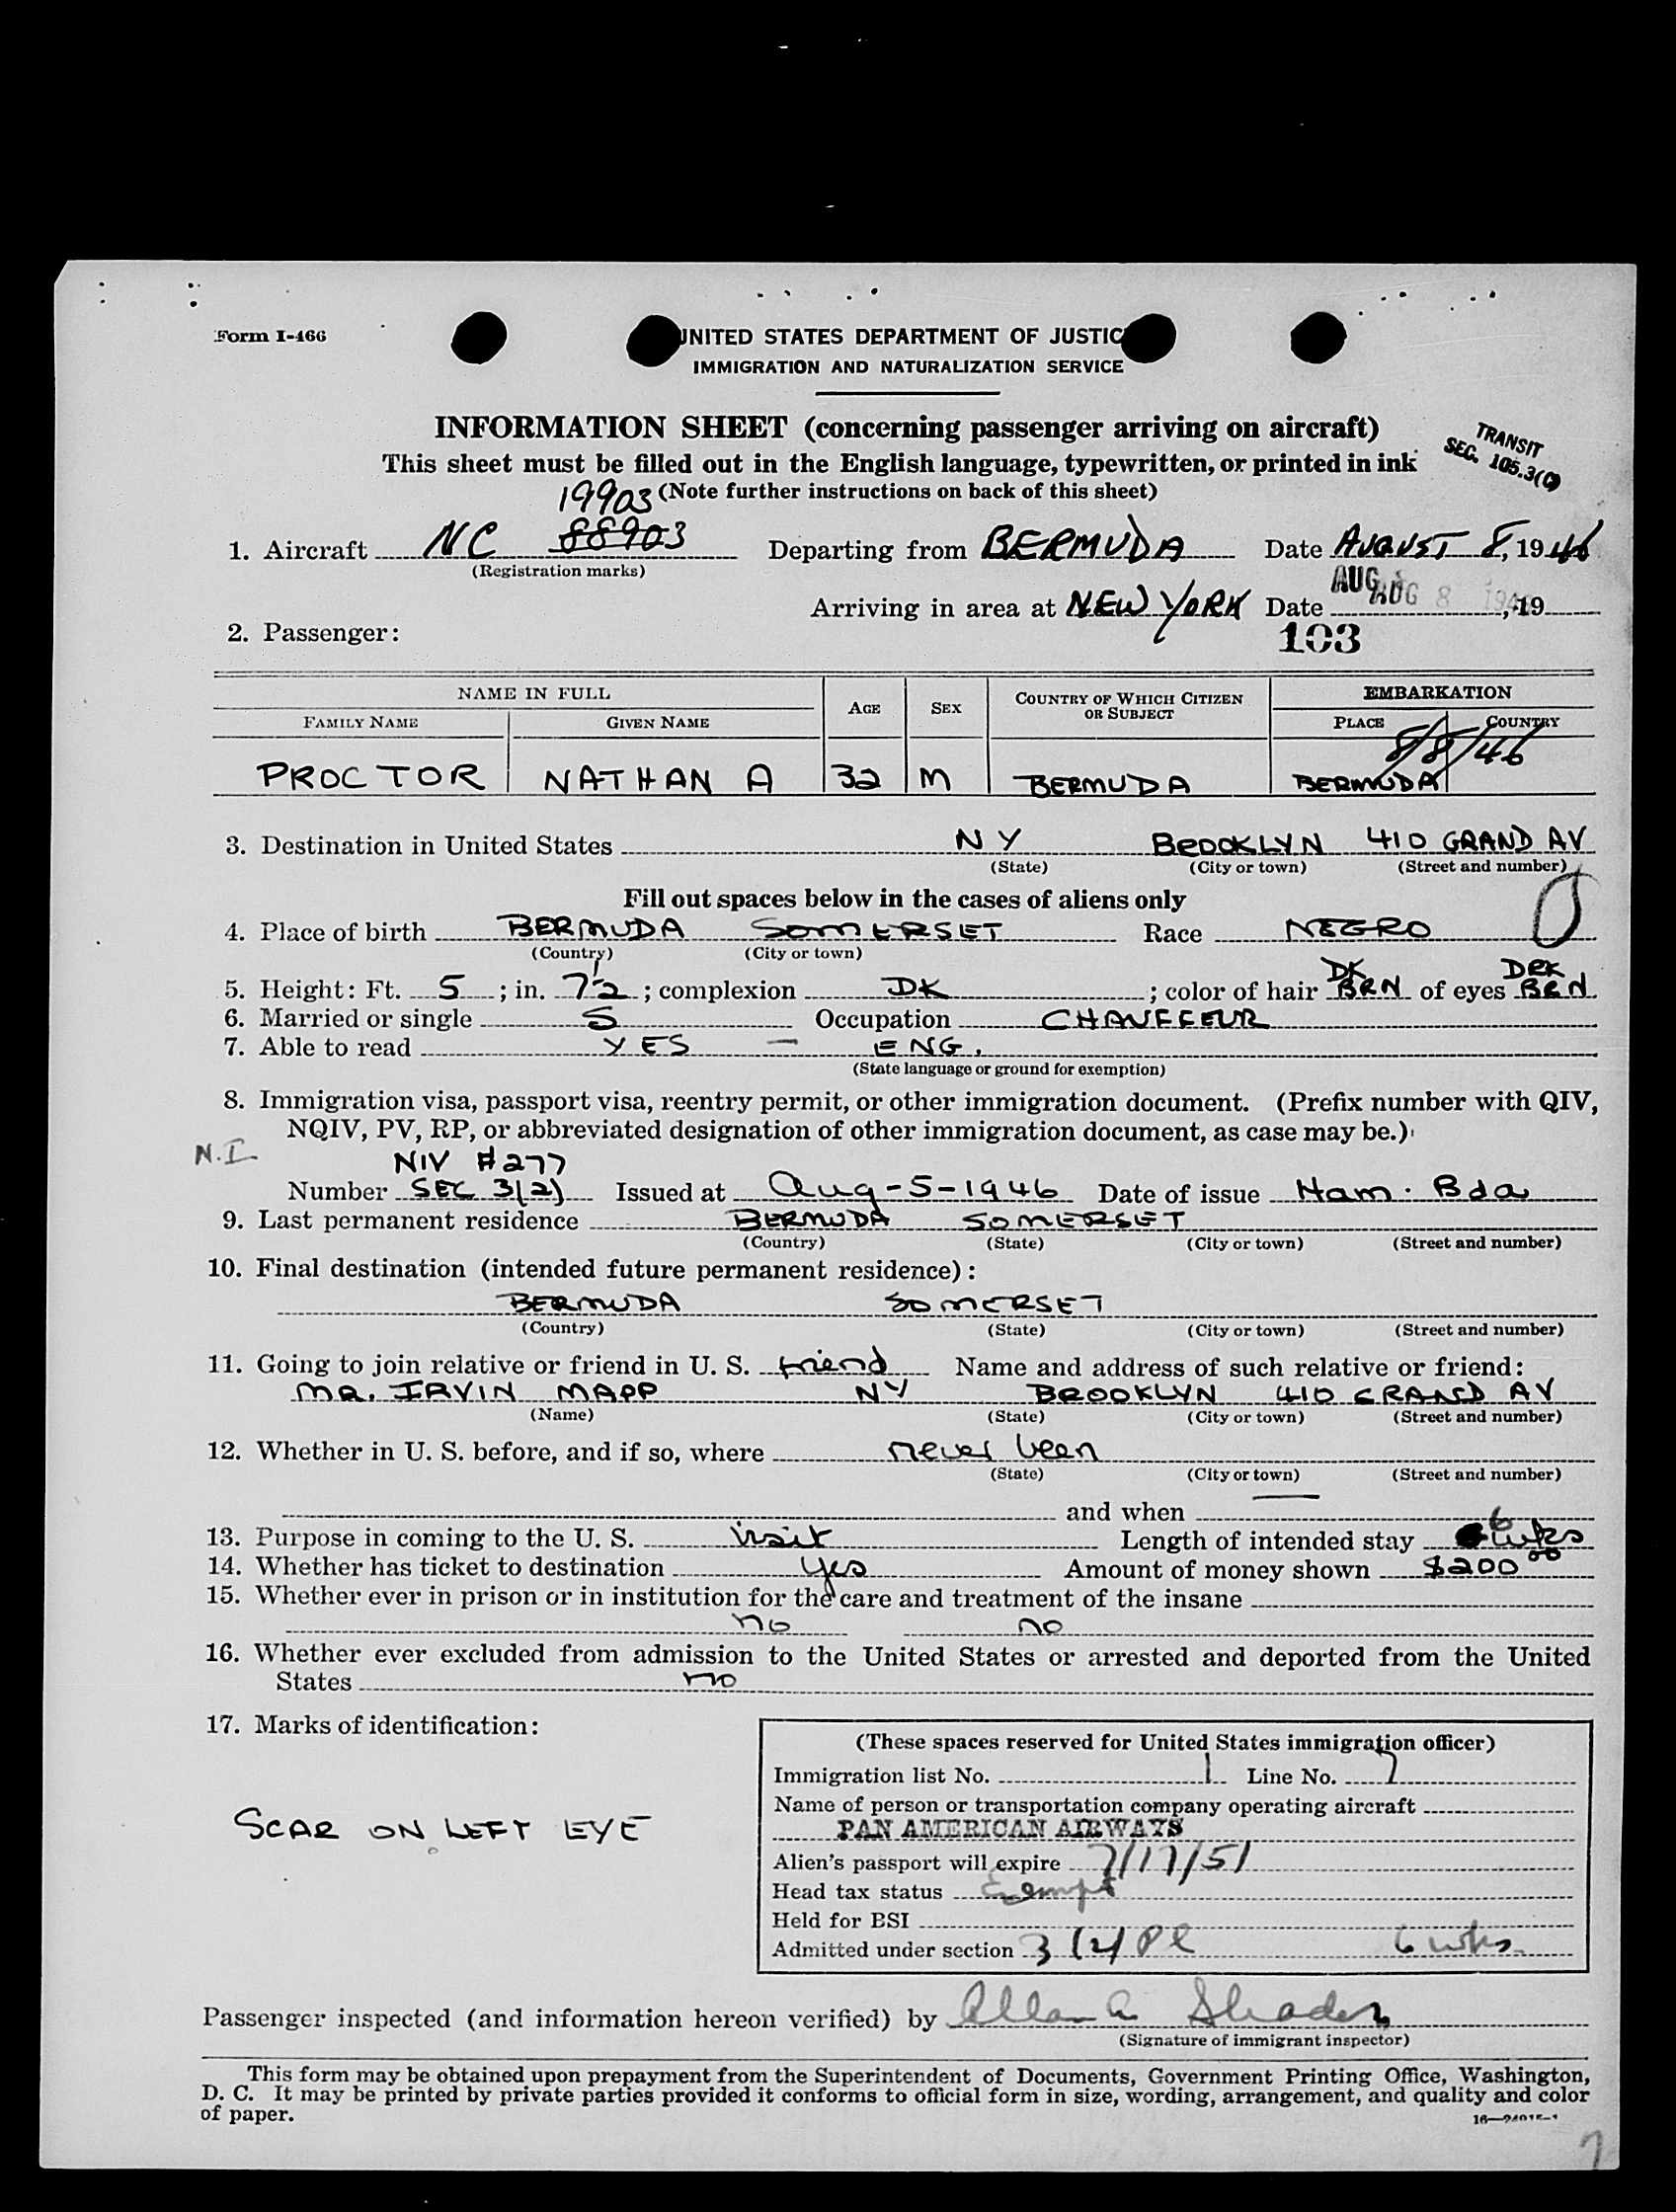 Form I-466
UNITED STATES DEPARTMENT OF JUSTIC
IMMIGRATION AND NATURALIZATION SERVICE
INFORMATION SHEET (concerning passenger arriving on aircraft)
This sheet must be filled out in the English language, typewritten, or printed in ink
TRANSIT
SEC. 105.3(C)
19903 (Note further instructions on back of this sheet)
1. Aircraft NC 88903 Departing from BERMUDA Date AUGUST 8, 1946
(Registration marks)
AUG AUG 8 194
Arriving in area at NEW YORK Date , 19
2. Passenger: 103
NAME IN FULL AGE SEX COUNTRY OF WHICH CITIZEN OR SUBJECT EMBARKATION
FAMILY NAME GIVEN NAME PLACE COUNTRY
8/8/46
PROCTOR NATHAN A 32 M BERMUDA BERMUDA
3. Destination in United States N Y BROOKLYN 410 GRAND AV
(State) (City or town) (Street and number)
Fill out spaces below in the cases of aliens only
4. Place of birth BERMUDA SOMERSET Race NEGRO
(Country) (City or town)
DK DRK
5. Height: Ft. 5 ; in. 7½ ; complexion DK ; color of hair BRN of eyes BRN
6. Married or single S Occupation CHAUFFEUR
7. Able to read YES — ENG.
(State language or ground for exemption)
8. Immigration visa, passport visa, reentry permit, or other immigration document. (Prefix number with QIV,
NQIV, PV, RP, or abbreviated designation of other immigration document, as case may be.)
N.I. NIV #277
Number SEC 3(2) Issued at Aug-5-1946 Date of issue Ham. Bda
9. Last permanent residence BERMUDA SOMERSET
(Country) (State) (City or town) (Street and number)
10. Final destination (intended future permanent residence):
BERMUDA SOMERSET
(Country) (State) (City or town) (Street and number)
11. Going to join relative or friend in U. S. friend Name and address of such relative or friend:
MR. IRVIN MAPP NY BROOKLYN 410 GRAND AV
(Name) (State) (City or town) (Street and number)
12. Whether in U. S. before, and if so, where never been
(State) (City or town) (Street and number)
and when —
13. Purpose in coming to the U. S. visit Length of intended stay 6 wks
14. Whether has ticket to destination yes Amount of money shown $200 00
15. Whether ever in prison or in institution for the care and treatment of the insane
no no
16. Whether ever excluded from admission to the United States or arrested and deported from the United
States no
17. Marks of identification:
SCAR ON LEFT EYE
(These spaces reserved for United States immigration officer)
Immigration list No. 1 Line No. 7
Name of person or transportation company operating aircraft
PAN AMERICAN AIRWAYS
Alien's passport will expire 7/17/51
Head tax status Exempt
Held for BSI
Admitted under section 3(2) 6 wks.
Passenger inspected (and information hereon verified) by Allan
(Signature of immigrant inspector)
This form may be obtained upon prepayment from the Superintendent of Documents, Government Printing Office, Washington,
D. C. It may be printed by private parties provided it conforms to official form in size, wording, arrangement, and quality and color
of paper.
7